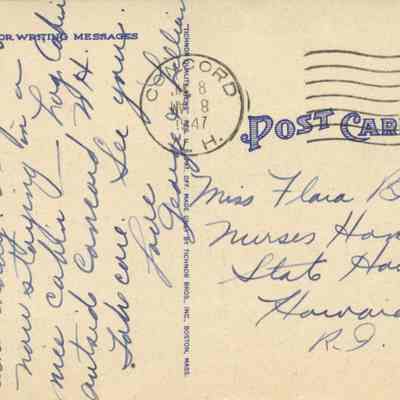 FOR WRITING MESSAGES
now staying in a
nice cabin - Log Cabin
outside Concord N.H.
Take care. See you.
Love
George & Lillian
TICHNOR QUALITY VIEWS, REG. U. S. PAT. OFF. MADE ONLY BY TICHNOR BROS., INC., BOSTON, MASS.
CONCORD
8
8
1947
N. H.
POST CAR
Miss Flora B
Nurses Hom
State Ho
Howard
R.I.